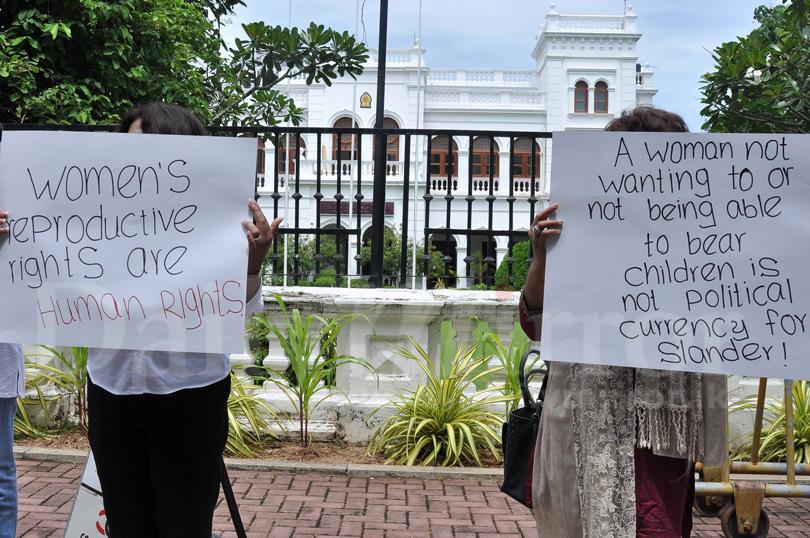 WOMEN'S
reproductive
rights are
Human Rights
A woman not
wanting to or
not being able
to bear
children is
not political
currency for
Slander!